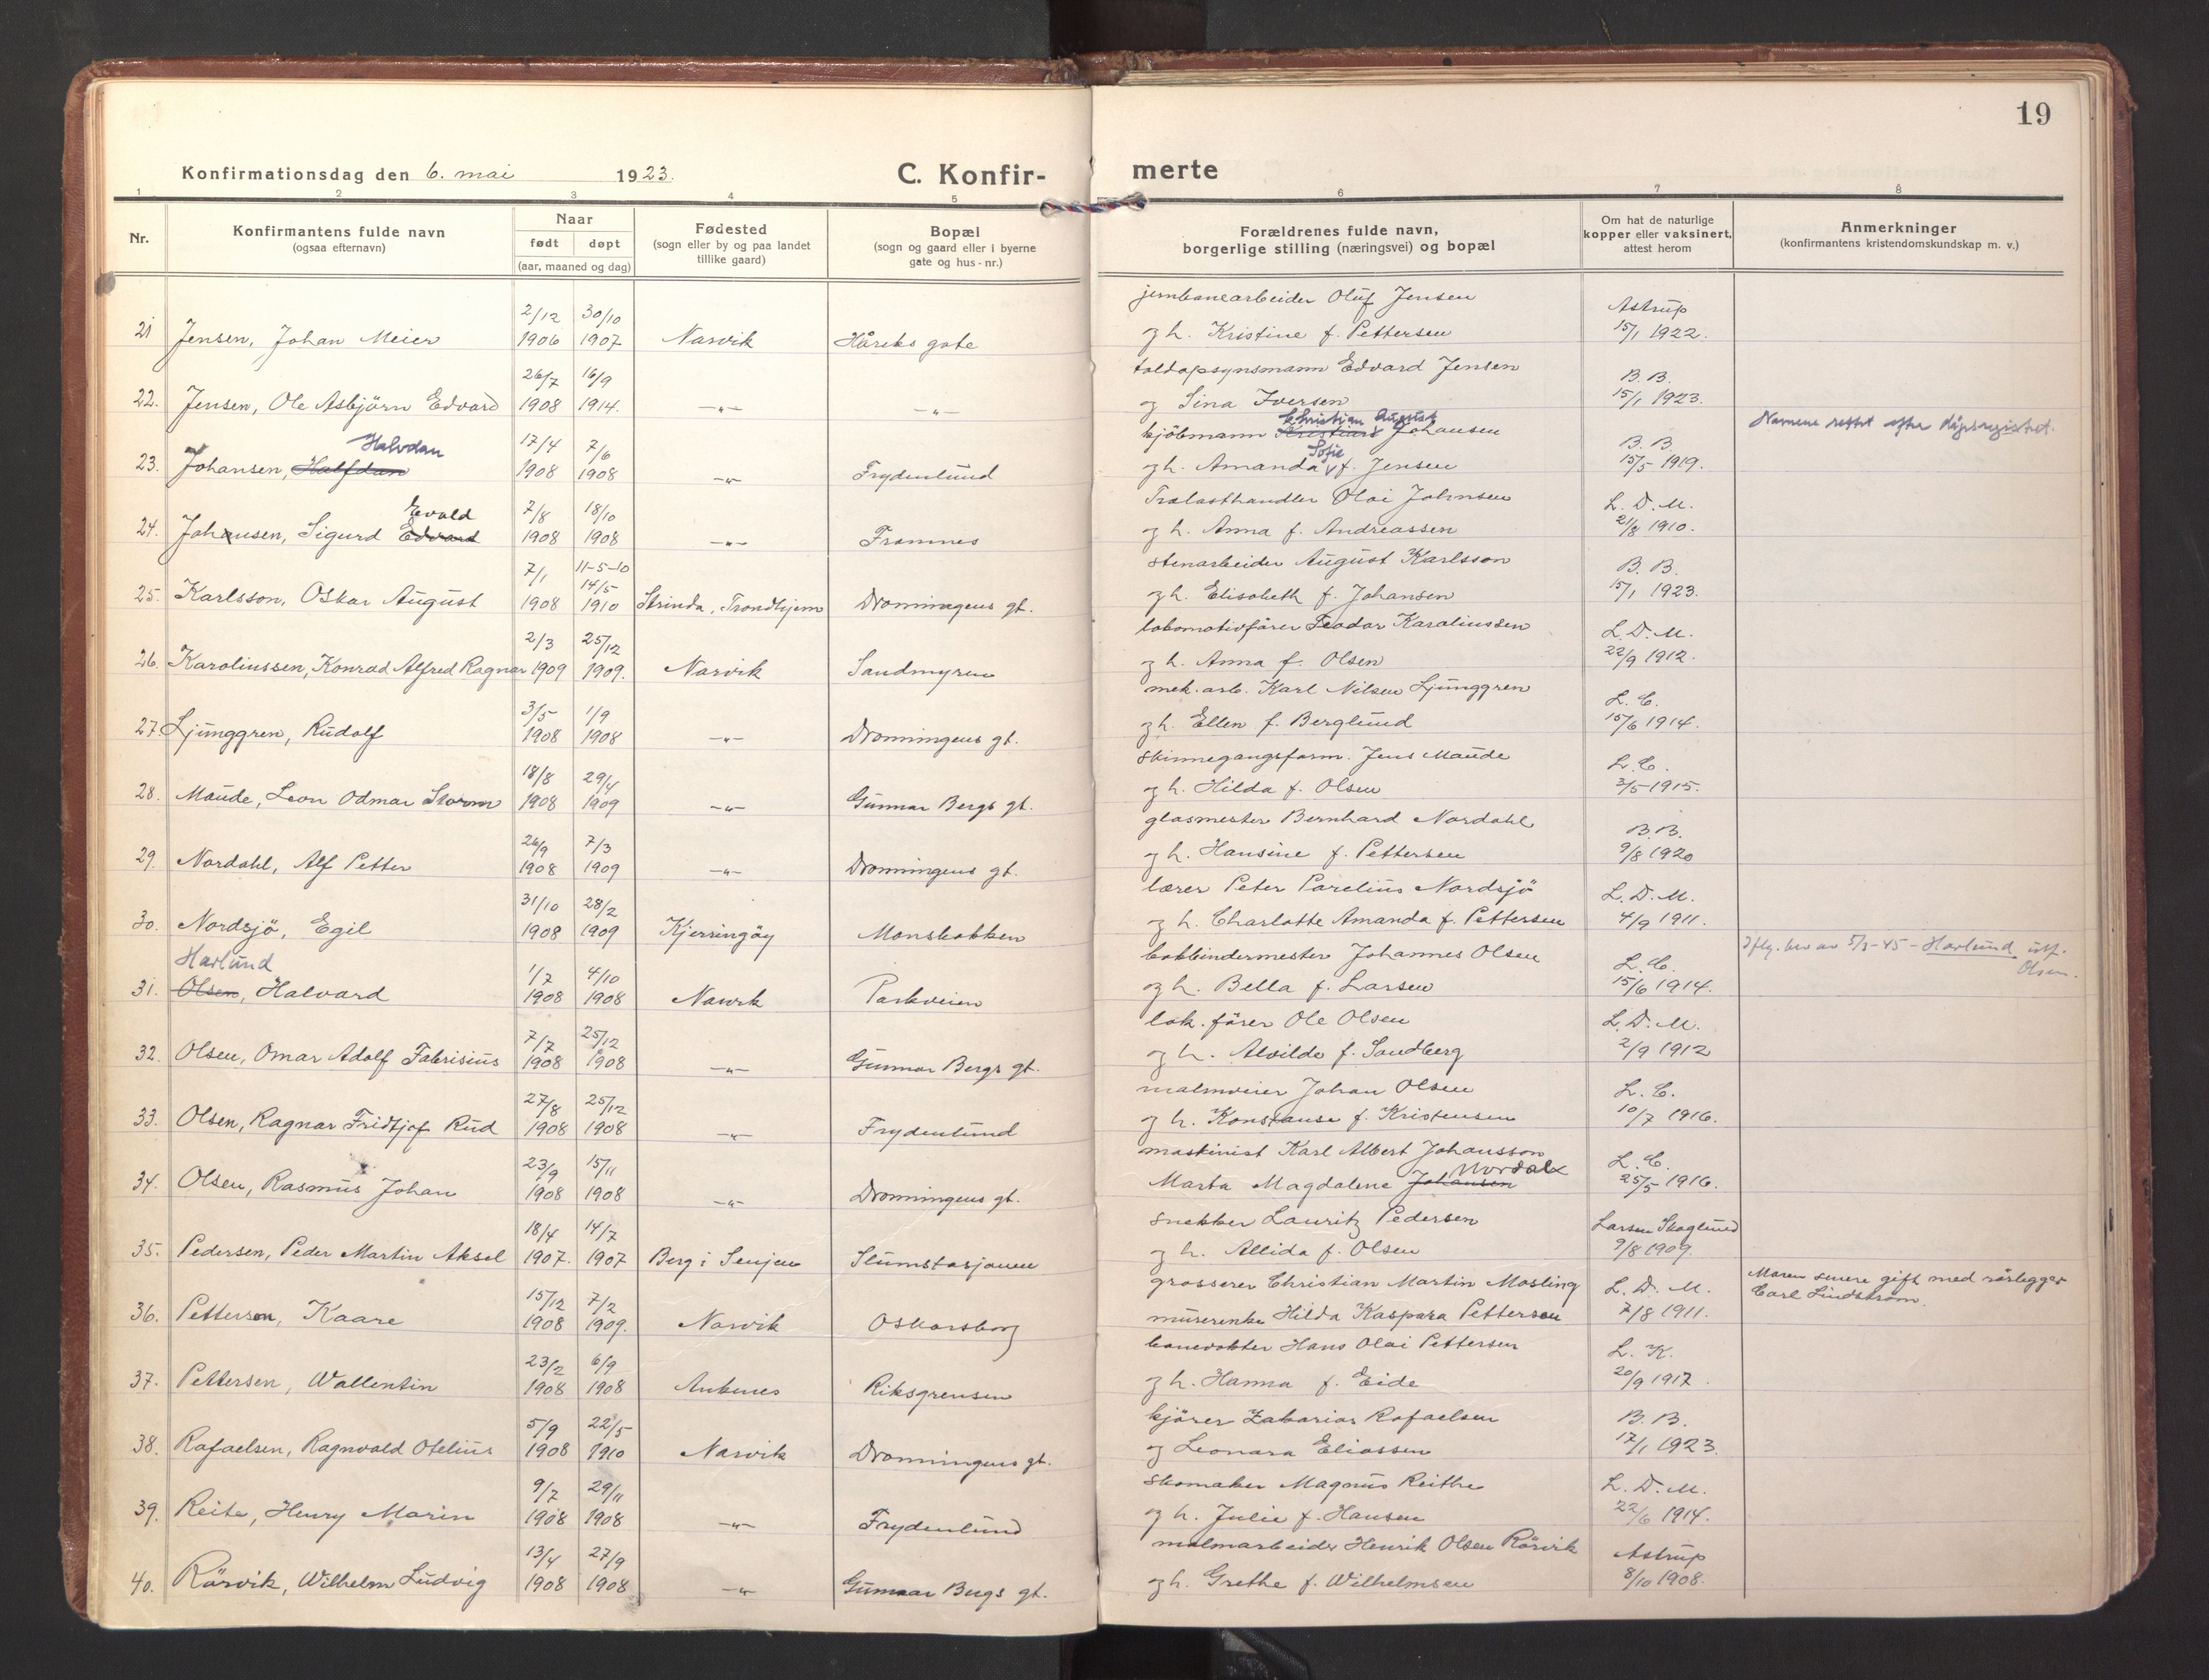 19
Konfirmationsdag den 6. mai 1923.
C. Konfir-
merte
1 2 3 4 5 6 7 8
Nr.
Konfirmantens fulde navn
(ogsaa efternavn)
Naar
født døpt
(aar, maaned og dag)
Fødested
(sogn eller by og paa landet
tillike gaard)
Bopæl
(sogn og gaard eller i byerne
gate og hus-nr.)
Forældrenes fulde navn,
borgerlige stilling (næringsvei) og bopæl
Om hat de naturlige
kopper eller vaksinert,
attest herom
Anmerkninger
(konfirmantens kristendomskundskap m. v.)
2/12 30/10 jernbanearbeider Oluf Jensen Astrup
21 Jensen, Johan Meier 1906 1907 Narvik Håreks gate og h. Kristine f. Pettersen 15/1 1922.
26/7 16/9 toldopsynsmann Edvard Jensen B. B.
22. Jensen, Ole Asbjörn Edvard 1908 1914. —"— —"— og Sina Iversen 15/1 1923.
Christian August
Halvdan 17/4 7/6 kjöbmann Kristian Johansen B. B. Navnene rettet efter dåpsregistret.
Sofie
23. Johansen, Halfdan 1908 1908 —"— Frydenlund og h. Amanda f. Jensen 15/5 1919.
Evald 7/8 18/10 Trælasthandler Olai Johnsen L. D. M.
24. Johansen, Sigurd Edvard 1908 1908 —"— Framnes og h. Anna f. Andreassen 21/8 1910.
7/1 11-5-10 14/5 stenarbeider August Karlsson B. B.
25. Karlsson, Oskar August 1908 1910 Strinda, Trondhjem Dronningens gt. og h. Elisabeth f. Johansen 15/1 1923.
2/3 25/12 lokomotivfører Teodor Karoliussen L. D. M.
26. Karoliussen, Konrad Alfred Ragnar 1909 1909. Narvik Sandmyren og h. Anna f. Olsen 22/9 1912.
3/5 1/9 mek. arb. Karl Nilsen Ljunggren L. C.
27. Ljunggren, Rudolf 1908 1908 —"— Dronningens gt. og h. Ellen f. Berglund 15/6 1914.
18/8 29/4 skinnegangsform. Jens Maude L. C.
28. Maude, Leon Odmar Storm 1908 1909 —"— Gunnar Bergs gt. og h. Hilda f. Olsen 3/5 1915.
26/9 7/3 glasmester Bernhard Nordahl B. B.
29. Nordahl, Alf Petter 1908 1909 —"— Dronningens gt. og h. Hansine f. Pettersen 9/8 1920
31/10 28/2 lærer Peter Parelius Nordsjö L. D. M.
30. Nordsjö, Egil 1908 1909 Kjerringöy Monsbakken og h. Charlotte Amanda f. Pettersen 4/9 1911.
Harlund 1/7 4/10 bokbindermester Johannes Olsen L. C. Iflg. bev av 5/3-45 - Harlund istf. Olsen.
31. Olsen, Halvard 1908 1908 Narvik Parkveien og h. Bella f. Larsen 15/6 1914.
7/7 25/12 lok. förer Ole Olsen L. D. M.
32. Olsen, Omar Adolf Fabrisius 1908 1908 —"— Gunnar Bergs gt. og h. Alvilde f. Sandberg 2/9 1912
27/8 25/12 malmveier Johan Olsen L. C.
33. Olsen, Ragnar Fridtjof Rud 1908 1908 —"— Frydenlund og h. Konstanse f. Kristensen 10/7 1916.
23/9 15/11 maskinist Karl Albert Johansson L. C.
Nordal
34. Olsen, Rasmus Johan 1908 1908 —"— Dronningens gt. Marta Magdalene Johansen 25/5 1916.
18/4 14/7 snekker Lauritz Pedersen Larsen Skoglund
35. Pedersen, Peder Martin Aksel 1907. 1907 Berg i Senjen Slumstasjonen og h. Allida f. Olsen 9/8 1909.
15/12 7/2 grosserer Christian Martin Mosling L. D. M. Moren senere gift med rörlegger Carl Lindström.
36. Petterson, Kaare 1908 1909. Narvik Oskarsborg murerenke Hilda Kaspara Pettersen 7/8 1911.
23/2 6/9 banevokter Hans Olai Pettersen L. K.
37. Pettersen, Wallentin 1908 1908 Ankenes Riksgrensen og h. Hanna f. Eide 20/9 1917.
5/9 22/5 kjörer Zakarias Rafaelsen B. B.
38. Rafaelsen, Ragnvald Otelius 1908 1910 Narvik Dronningens gt. og Leonara Eliassen 17/1 1923.
9/7 29/11 skomaker Magnus Reithe L. D. M.
39. Reite, Henry Marin 1908 1908 —"— Frydenlund og h. Julie f. Hansen 22/6 1914.
13/4 27/9 malmarbeider Henrik Olsen Rörvik Astrup
40. Rörvik, Wilhelm Ludvig 1908 1908 —"— Gunnar Bergs gt. og h. Grethe f. Wilhelmsen 8/10 1908.